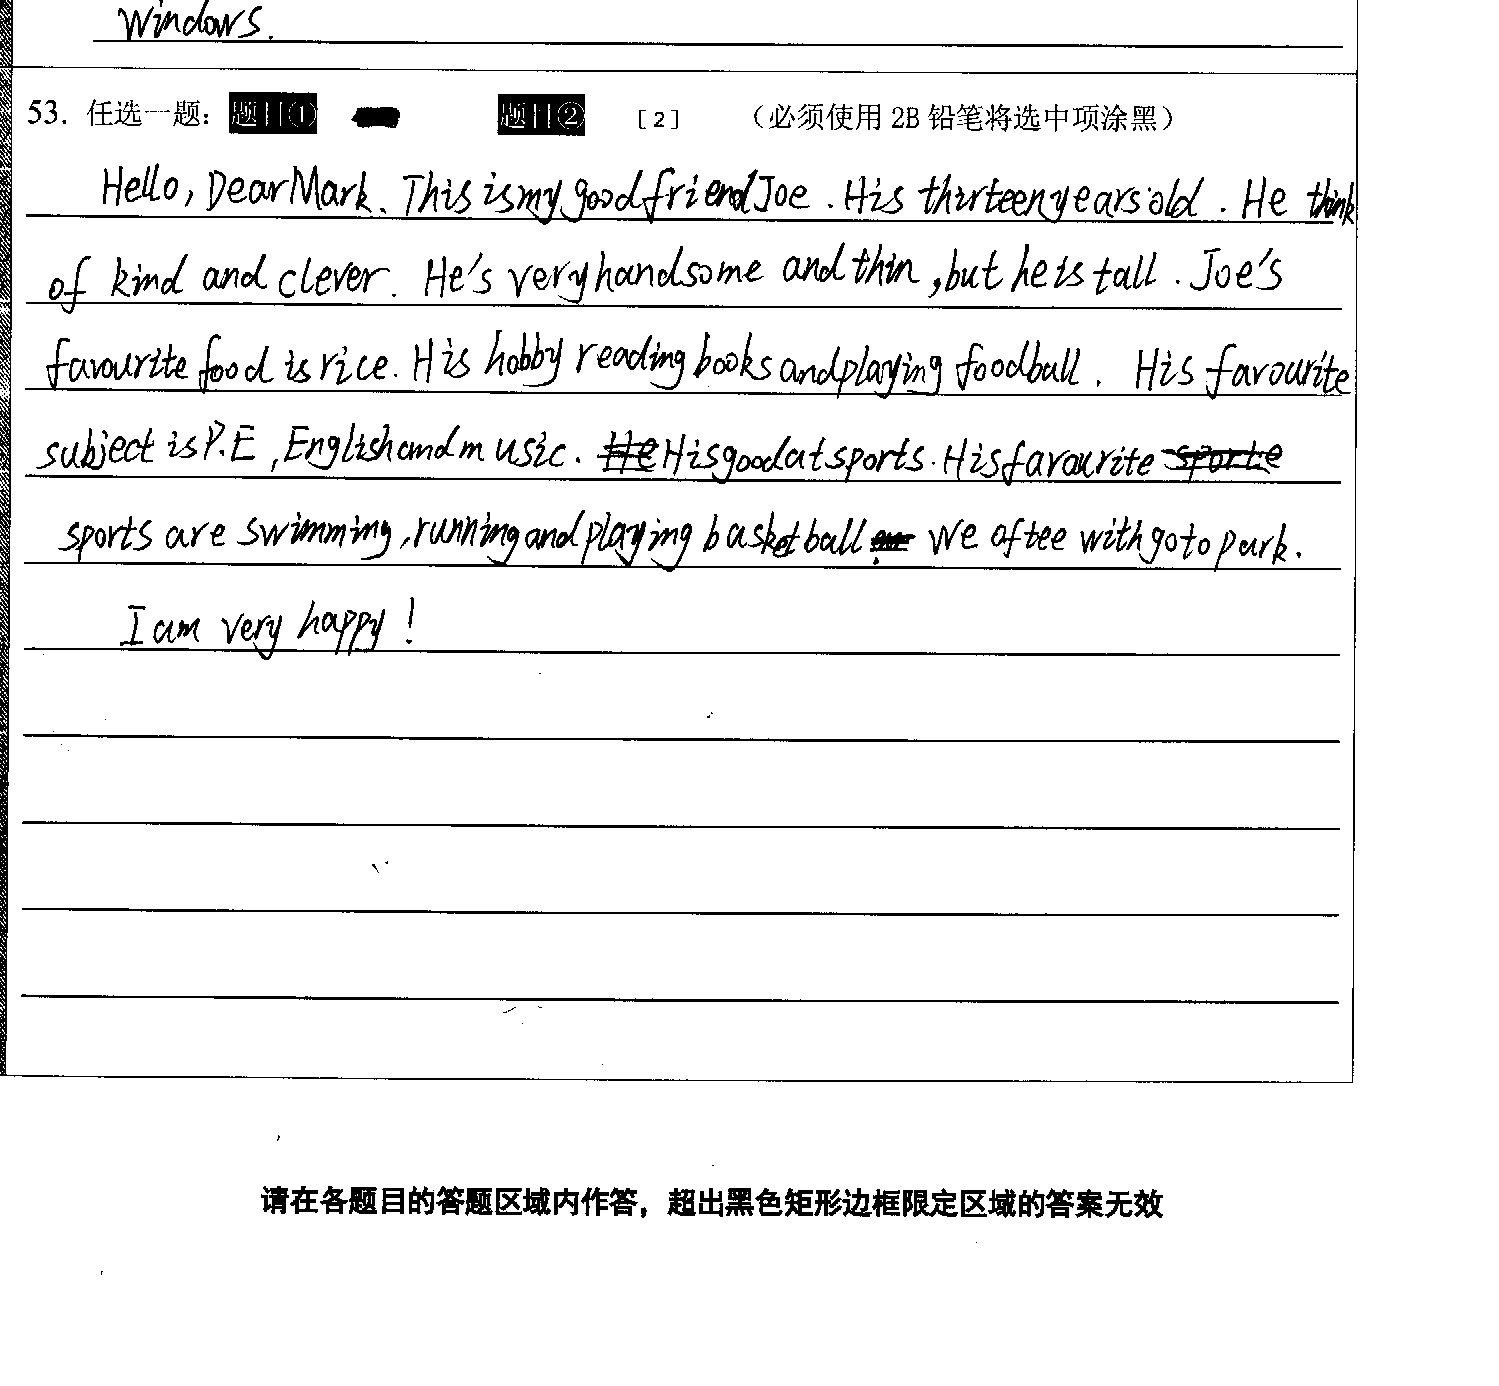 Windows.
53. 任选一题： 题目① 题目② [2] （必须使用 2B 铅笔将选中项涂黑）
Hello, Dear Mark. This is my good friend Joe. His thirteen years old. He think
of kind and clever. He's very handsome and thin, but he is tall. Joe's
favourite food is rice. His hobby reading books and playing foodball. His favourite
subject is P.E, English and music. He His good at sports. His favourite sporte
sports are swimming, running and playing basketball. We oftee with go to park.
I am very happy!
请在各题目的答题区域内作答，超出黑色矩形边框限定区域的答案无效